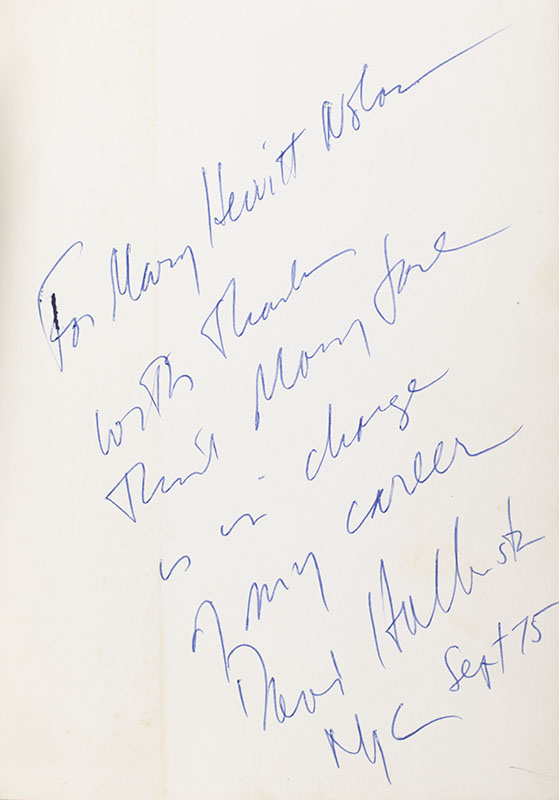 For Mary Hewitt Nolan
with Thanks
That Mary Jane
is in charge
of my career
David
NYC Sept 75